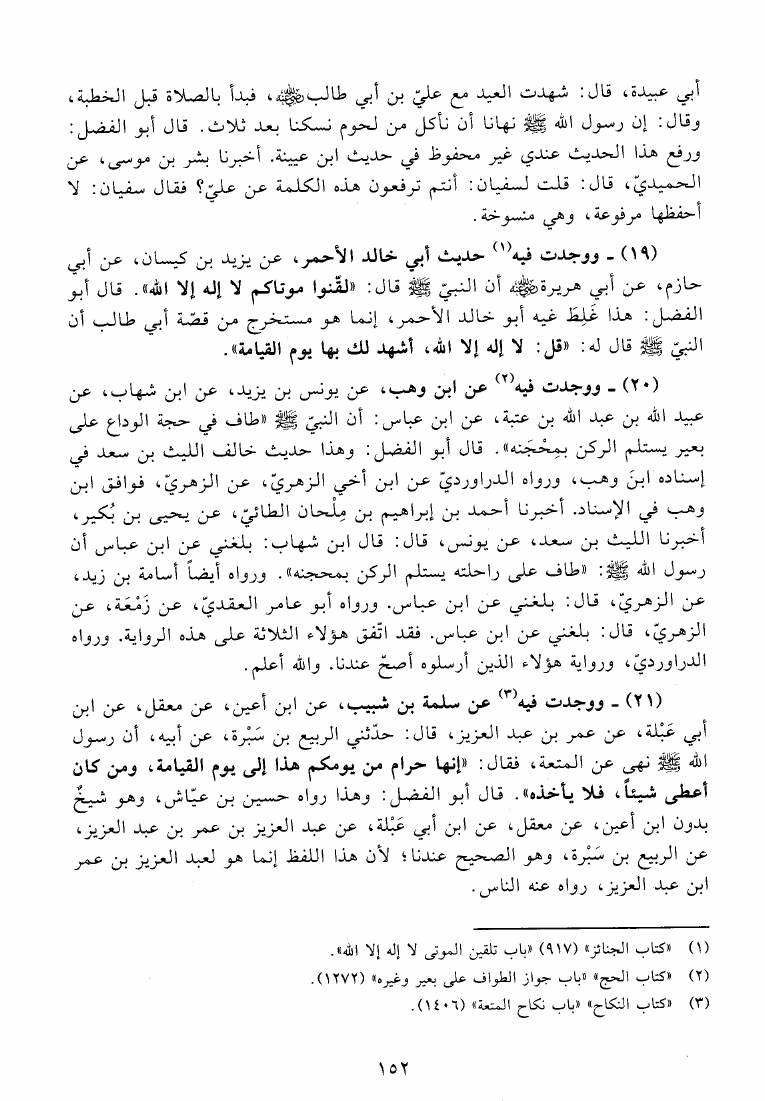 أبي عبيدة، قال: شهدت العيد مع عليّ بن أبي طالب رضي الله عنه، فبدأ بالصلاة قبل الخطبة،
وقال: إن رسول الله ﷺ نهانا أن نأكل من لحوم نسكنا بعد ثلاث. قال أبو الفضل:
ورفع هذا الحديث عندي غير محفوظ في حديث ابن عيينة. أخبرنا بشر بن موسى، عن
الحميديّ، قال: قلت لسفيان: أنتم ترفعون هذه الكلمة عن عليّ؟ فقال سفيان: لا
أحفظها مرفوعة، وهي منسوخة.
(١٩) - ووجدت فيه(١) حديث أبي خالد الأحمر، عن يزيد بن كيسان، عن أبي
حازم، عن أبي هريرة رضي الله عنه أن النبيّ ﷺ قال: «لقّنوا موتاكم لا إله إلا الله». قال أبو
الفضل: هذا غَلِطَ غيه أبو خالد الأحمر، إنما هو مستخرج من قصّة أبي طالب أن
النبيّ ﷺ قال له: «قل: لا إله إلا الله، أشهد لك بها يوم القيامة».
(٢٠) - ووجدت فيه(٢) عن ابن وهب، عن يونس بن يزيد، عن ابن شهاب، عن
عبيد الله بن عبد الله بن عتبة، عن ابن عباس: أن النبيّ ﷺ «طاف في حجة الوداع على
بعير يستلم الركن بمِحْجَنه». قال أبو الفضل: وهذا حديث خالف الليث بن سعد في
إسناده ابنَ وهب، ورواه الدراورديّ عن ابن أخي الزهريّ، عن الزهريّ، فوافق ابن
وهب في الإسناد. أخبرنا أحمد بن إبراهيم بن مِلْحان الطائيّ، عن يحيى بن بُكير،
أخبرنا الليث بن سعد، عن يونس، قال: قال ابن شهاب: بلغني عن ابن عباس أن
رسول الله ﷺ: «طاف على راحلته يستلم الركن بمحجنه». ورواه أيضاً أسامة بن زيد،
عن الزهريّ، قال: بلغني عن ابن عباس. ورواه أبو عامر العقديّ، عن زَمْعَة، عن
الزهريّ، قال: بلغني عن ابن عباس. فقد اتّفق هؤلاء الثلاثة على هذه الرواية. ورواه
الدراورديّ، ورواية هؤلاء الذين أرسلوه أصحّ عندنا. والله أعلم.
(٢١) - ووجدت فيه(٣) عن سلمة بن شبيب، عن ابن أعين، عن معقل، عن ابن
أبي عَبْلة، عن عمر بن عبد العزيز، قال: حدّثني الربيع بن سَبْرة، عن أبيه، أن رسول
الله ﷺ نهى عن المتعة، فقال: «إنها حرام من يومكم هذا إلى يوم القيامة، ومن كان
أعطى شيئاً، فلا يأخذه». قال أبو الفضل: وهذا رواه حسين بن عيّاش، وهو شيخٌ
بدون ابن أعين، عن معقل، عن ابن أبي عَبْلة، عن عبد العزيز بن عمر بن عبد العزيز،
عن الربيع بن سَبْرة، وهو الصحيح عندنا؛ لأن هذا اللفظ إنما هو لعبد العزيز بن عمر
ابن عبد العزيز، رواه عنه الناس.
(١) «كتاب الجنائز» (٩١٧) «باب تلقين الموتى لا إله إلا الله».
(٢) «كتاب الحج» «باب جواز الطواف على بعير وغيره» (١٢٧٢).
(٣) «كتاب النكاح» «باب نكاح المتعة» (١٤٠٦).
١٥٢